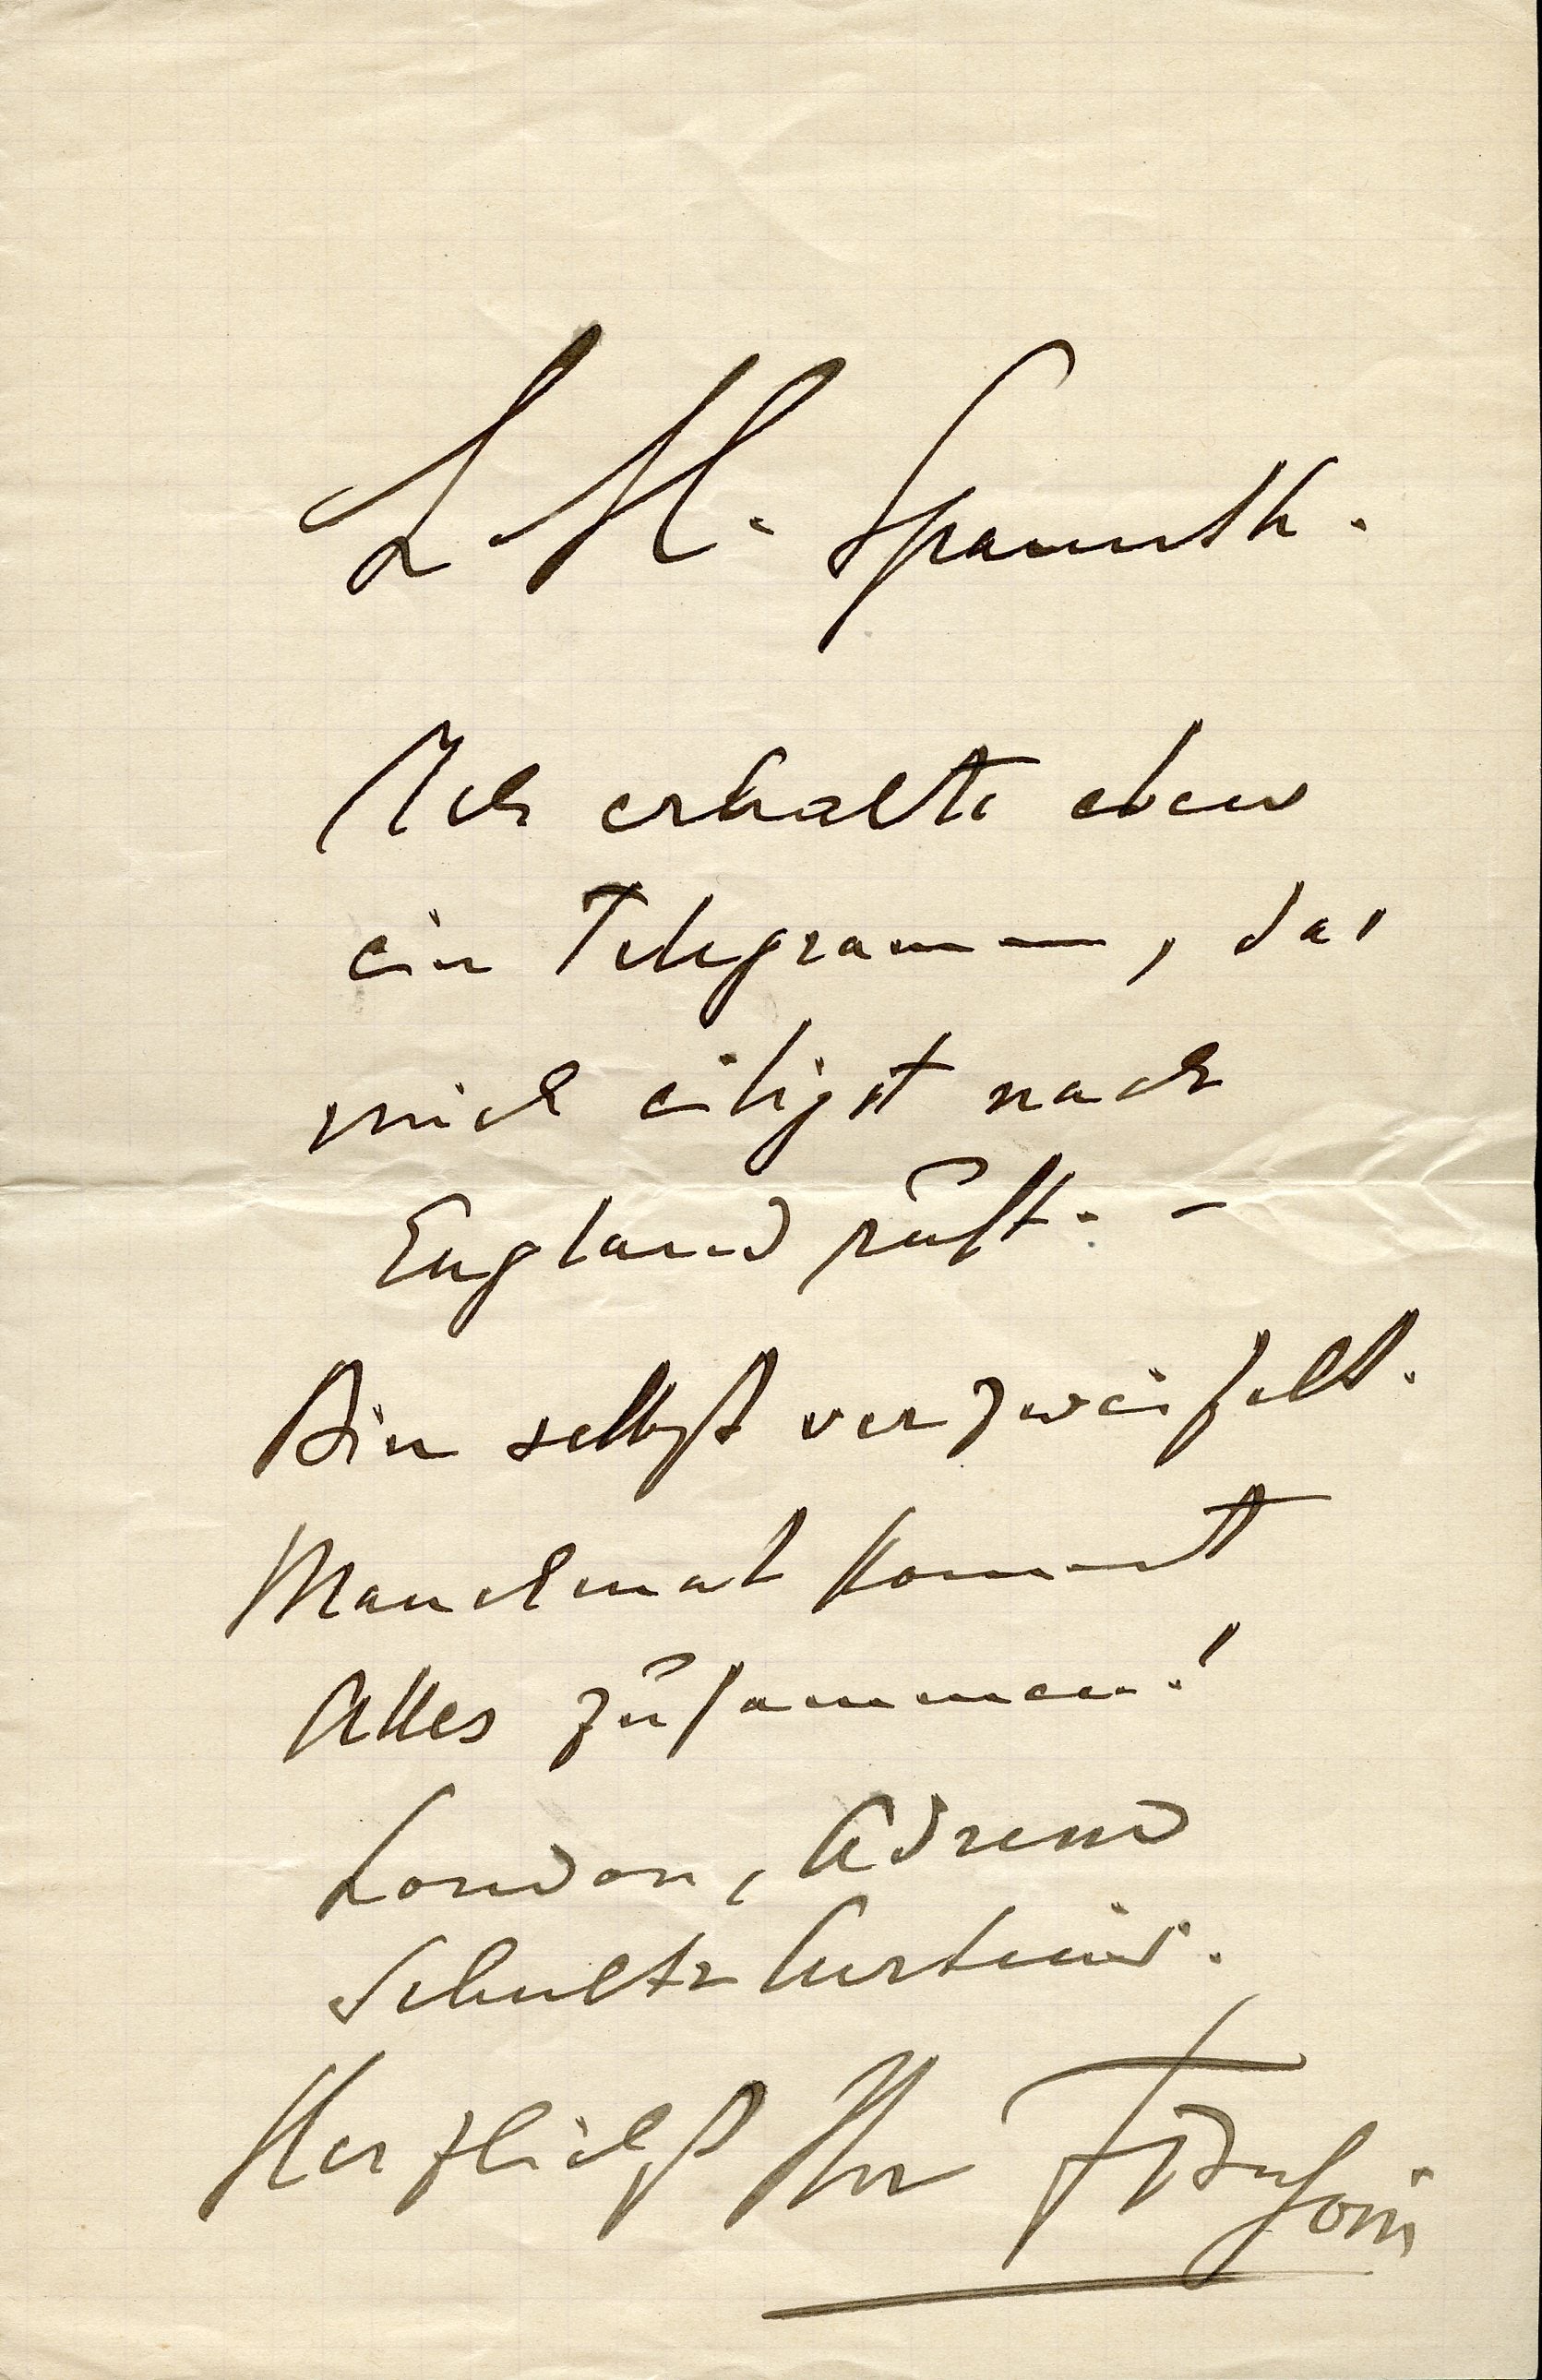 L. H. Spanuth.
Ich erhalte eben
ein Telegramm, das
mich eiligst nach
England ruft. –
Bin selbst verzweifelt.
Manchmal kommt
Alles zusammen!
London, Adresse
Schultz Curtius.
Herzlichst Ihr FBusoni